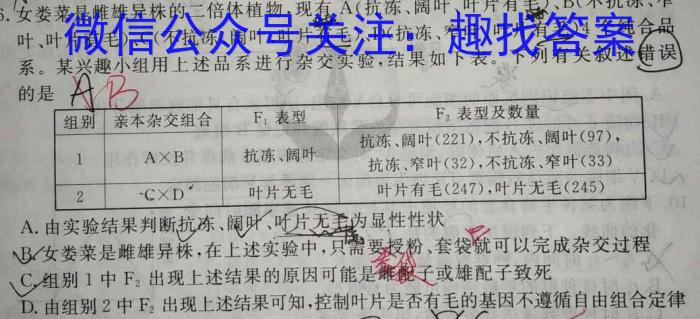 女娄菜是雌雄异株的二倍体植物,现有A(抗冻、阔叶、叶片有毛)、B(不抗冻、窄
微信公众号关注:趣找答案
系。某兴趣小组用上述品系进行杂交实验,结果如下表。下列有关叙述错误
的是
AB
组别 亲本杂交组合 F₁ 表型 F₂ 表型及数量
1 A×B 抗冻、阔叶 抗冻、阔叶(221),不抗冻、阔叶(97),
抗冻、窄叶(32),不抗冻、窄叶(33)
2 C×D 叶片无毛 叶片有毛(247),叶片无毛(245)
A.由实验结果判断抗冻、阔叶、叶片无毛为显性性状
B.女娄菜是雌雄异株,在上述实验中,只需要授粉、套袋就可以完成杂交过程
C.组别1中F₂ 出现上述结果的原因可能是雌配子或雄配子致死
D.由组别2中F₂ 出现上述结果可知,控制叶片是否有毛的基因不遵循自由组合定律